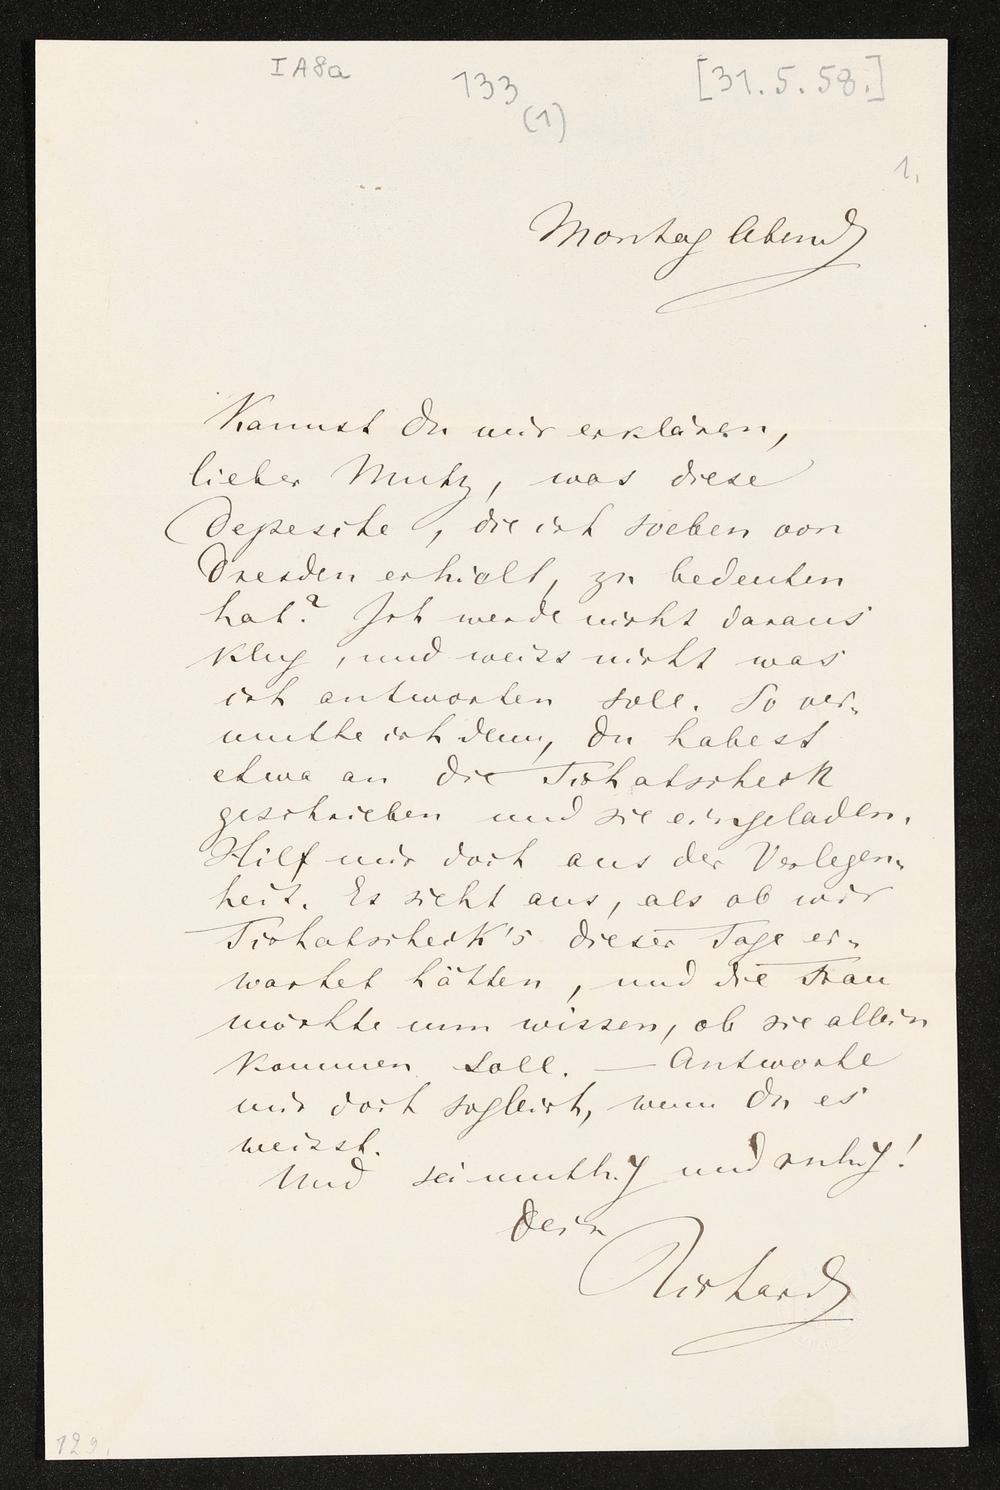 I A 8a
133
(1)
[31.5.58.]
1.
Montag Abend
Kannst Du mir erklären,
lieber Mutz, was diese
Depesche, die ich soeben von
Dresden erhielt, zu bedeuten
hat? Ich werde nicht daraus
klug, und weiss nicht was
ich antworten soll. So ver-
muthe ich denn, Du habest
etwa an die Tichatscheck
geschrieben und sie eingeladen.
Hilf mir doch aus der Verlegen-
heit. Es sieht aus, als ob wir
Tichatscheck's dieser Tage er-
wartet hätten, und die Frau
möchte nun wissen, ob sie allein
kommen soll. — Antworte
mir doch sogleich, wenn Du es
weisst.
Und sei muthig und ruhig!
Dein
Richard
129.